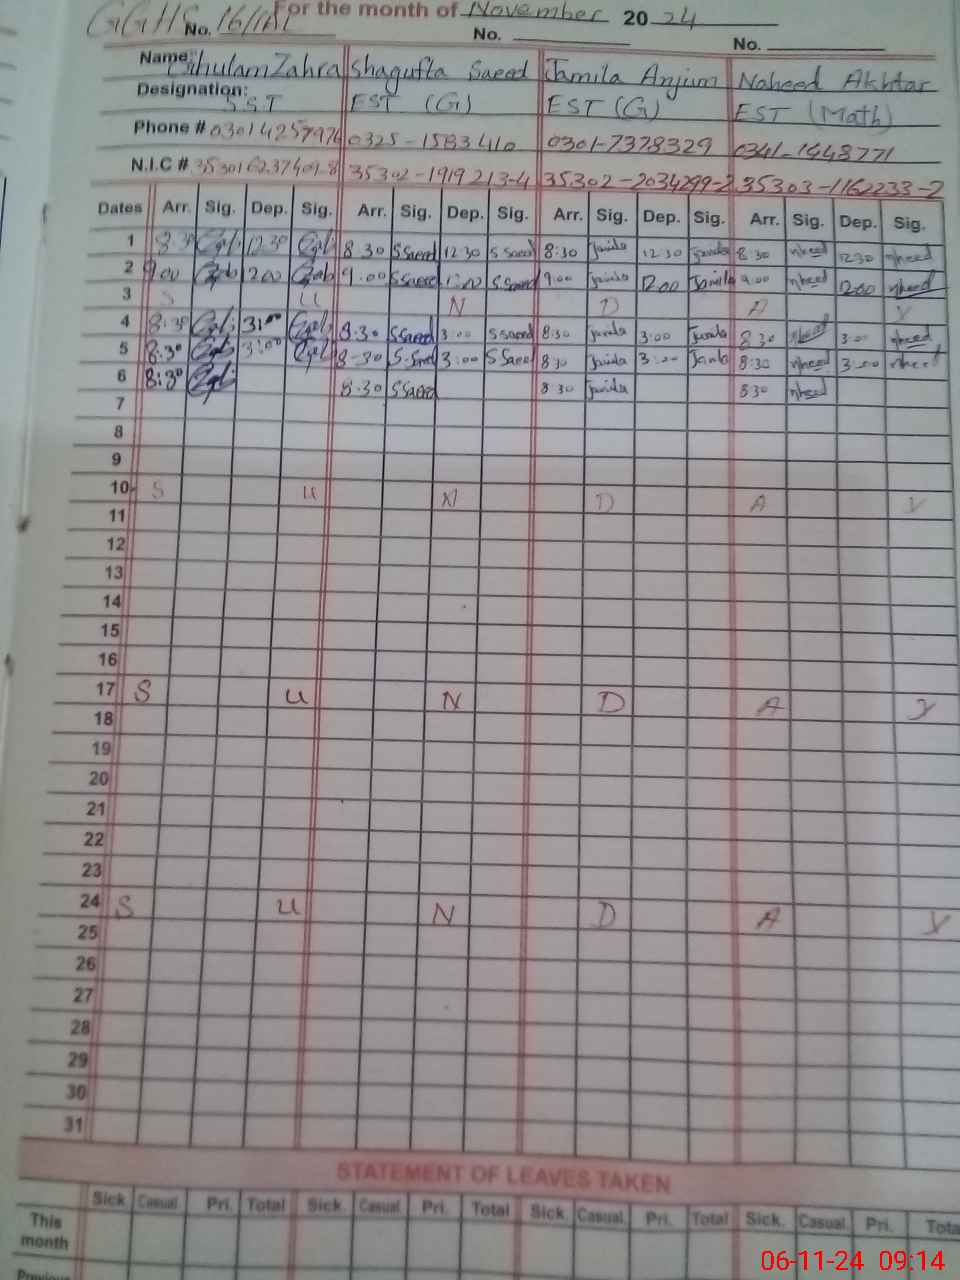 GGHS 16/1AL For the month of November 2024
No. No. No.
Name: Ghulam Zahra Shagufta Saeed Jamila Anjum Naheed Akhtar
Designation: S.S.T EST (G) EST (G) EST (Math)
Phone # 0325-1583410 0301-7378329 0341-1448771
N.I.C # 35302-1919213-4 35302-2034299-2 35303-1162233-2
Dates Arr. Sig. Dep. Sig. Arr. Sig. Dep. Sig. Arr. Sig. Dep. Sig. Arr. Sig. Dep. Sig.
1 8:30 12:30 8 30 SSaeed 12:30 SSaeed 8:30 Jamila 12:30 Jamila 8:30 nheed 12:30 nheed
2 9:00 9:00 SSaeed SSaeed 9:00 Jamila 12:00 Jamila 9:00 nheed 12:00 nheed
3 S U N D A Y
4 8:30 3:00 8:30 SSaeed 3:00 SSaeed 8:30 Jamila 3:00 Jamila 8:30 nheed 3:00 nheed
5 8:30 3:00 8-30 3:00 SSaeed 8:30 Jamila 3:00 Jamila 8:30 nheed 3:00 nheed
6 8:30 8-30 SSaeed 8:30 Jamila 8:30 nheed
7
8
9
10 S U N D A Y
11
12
13
14
15
16
17 S U N D A Y
18
19
20
21
22
23
24 S U N D A Y
25
26
27
28
29
30
31
STATEMENT OF LEAVES TAKEN
Sick Casual Pri. Total Sick. Casual Pri. Total Sick. Casual. Pri. Total Sick. Casual. Pri. Tota
This month
Previous
06-11-24 09:14